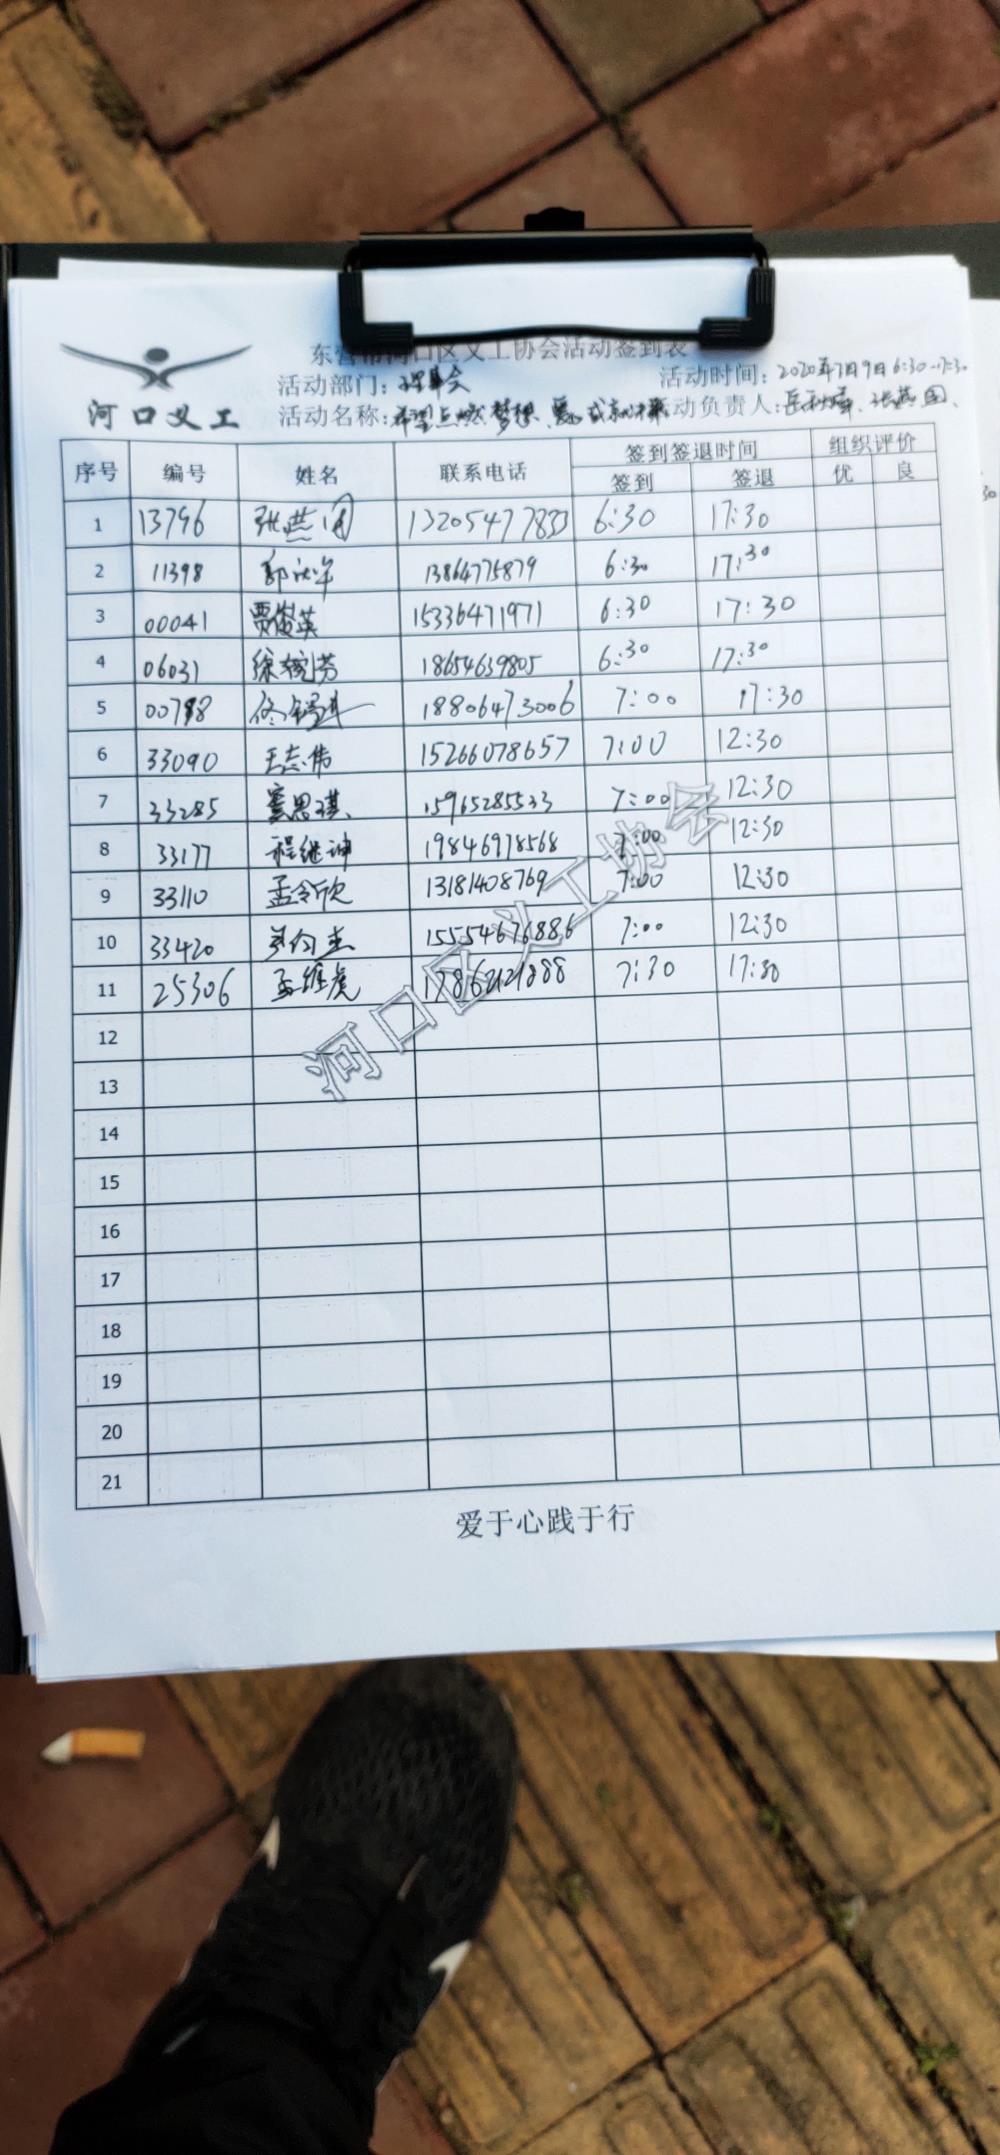 东营市河口区义工协会活动签到表
河口义工
活动部门：理事会
活动时间：2020年7月9日 6:30-17:30
活动名称：希望点燃梦想、爱 成就 活动负责人： 张燕国、
序号 编号 姓名 联系电话 签到签退时间 组织评价
签到 签退 优 良
1 13796 张燕国 13205477833 6:30 17:30
2 11398 郭 13864775879 6:30 17:30
3 00041 贾俊英 15336471971 6:30 17:30
4 06031 徐婉芳 18654639805 6:30 17:30
5 00788 佟 18806473006 7:00 17:30
6 33090 王志伟 15266078657 7:00 12:30
7 33285 窦思琪 15965285533 7:00 12:30
8 33177 程继坤 19846978568 7:00 12:30
9 33110 孟令欣 13181408769 7:00 12:30
10 33420 15554676886 7:00 12:30
11 25306 孟维虎 17862121888 7:30 17:30
12
13
14
15
16
17
18
19
20
21
河口区义工协会
爱于心践于行